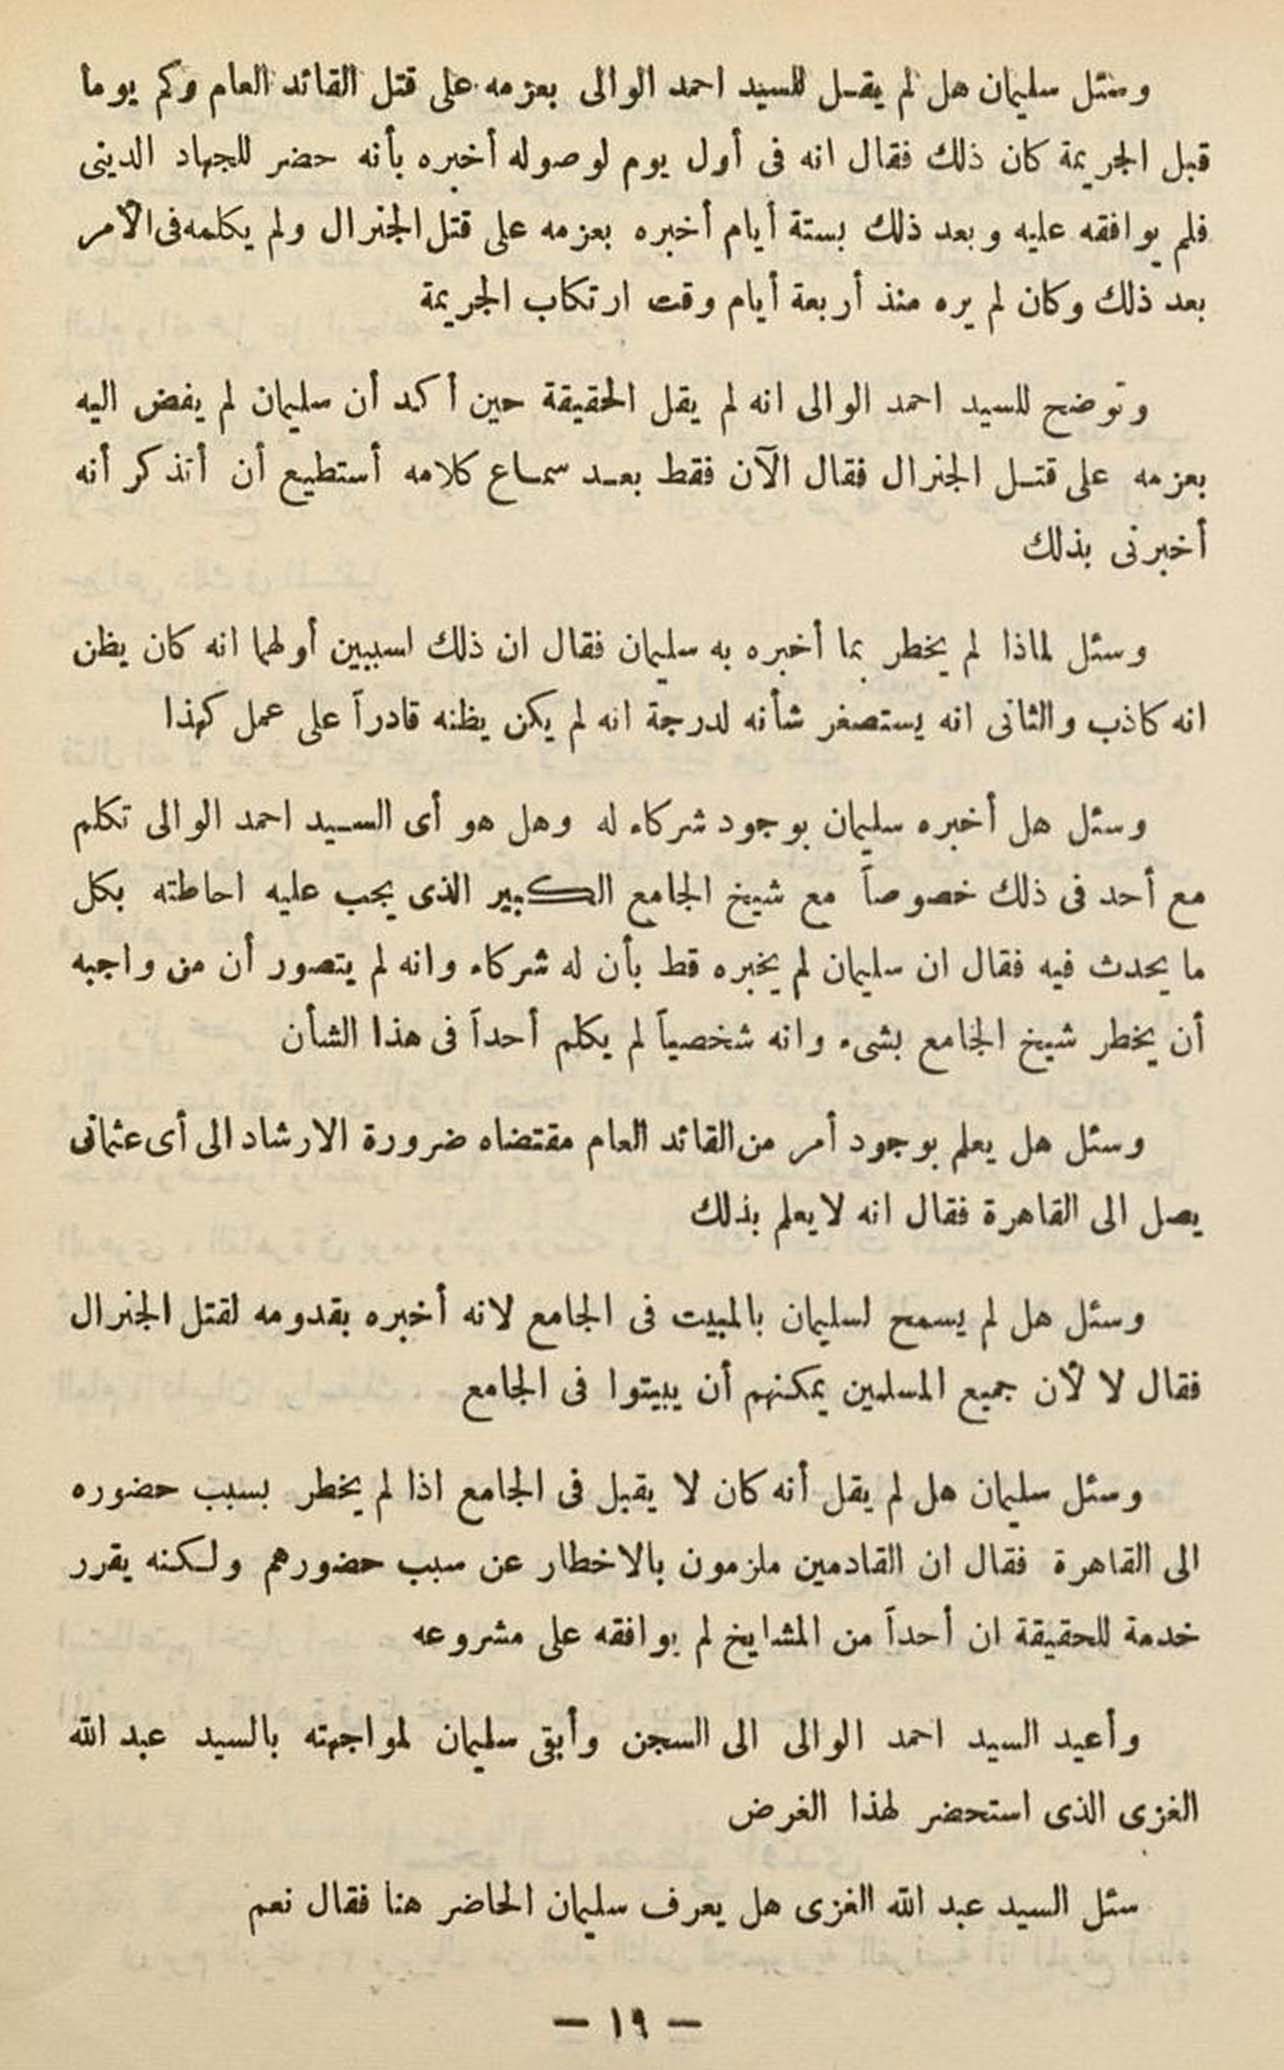 وسئل سليمان هل لم يقل للسيد احمد الوالى بعزمه على قتل القائد العام وكم يوما
قبل الجريمة كان ذلك فقال انه فى أول يوم لوصوله أخبره بأنه حضر للجهاد الدينى
فلم يوافقه عليه وبعد ذلك بستة أيام أخبره بعزمه على قتل الجنرال ولم يكلمه فى الأمر
بعد ذلك وكان لم يره منذ أربعة أيام وقت ارتكاب الجريمة
وتوضح للسيد احمد الوالى انه لم يقل الحقيقة حين أكد أن سليمان لم يفض اليه
بعزمه على قتل الجنرال فقال الآن فقط بعد سماع كلامه أستطيع أن أتذكر أنه
أخبرنى بذلك
وسئل لماذا لم يخطر بما أخبره به سليمان فقال ان ذلك لسببين أولهما انه كان يظن
انه كاذب والثانى انه يستصغر شأنه لدرجة انه لم يكن يظنه قادراً على عمل كهذا
وسئل هل أخبره سليمان بوجود شركاء له وهل هو أى السيد احمد الوالى تكلم
مع أحد فى ذلك خصوصاً مع شيخ الجامع الكبير الذى يجب عليه احاطته بكل
ما يحدث فيه فقال ان سليمان لم يخبره قط بأن له شركاء وانه لم يتصور أن من واجبه
أن يخطر شيخ الجامع بشىء وانه شخصياً لم يكلم أحداً فى هذا الشأن
وسئل هل يعلم بوجود أمر من القائد العام مقتضاه ضرورة الارشاد الى أى عثمانى
يصل الى القاهرة فقال انه لا يعلم بذلك
وسئل هل لم يسمح لسليمان بالمبيت فى الجامع لانه أخبره بقدومه لقتل الجنرال
فقال لا لأن جميع المسلمين يمكنهم أن يبيتوا فى الجامع
وسئل سليمان هل لم يقل أنه كان لا يقبل فى الجامع اذا لم يخطر بسبب حضوره
الى القاهرة فقال ان القادمين ملزمون بالاخطار عن سبب حضورهم ولكنه يقرر
خدمة للحقيقة ان أحداً من المشايخ لم يوافقه على مشروعه
وأعيد السيد احمد الوالى الى السجن وأبقى سليمان لمواجهته بالسيد عبد الله
الغزى الذى استحضر لهذا الغرض
سئل السيد عبد الله الغزى هل يعرف سليمان الحاضر هنا فقال نعم
— ١٩ —